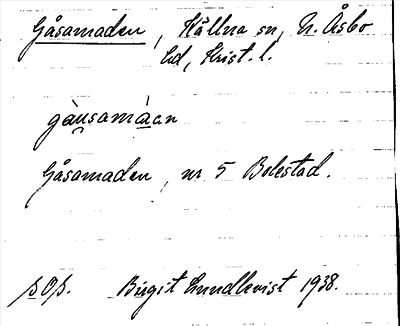 Gåsamaden, Källna sn, N. Åsbo
hd, Krist. l.
gàu̯samàan
Gåsamaden, nr 5 Bolestad.
s. Ops. Birgit Lundkvist 1938.